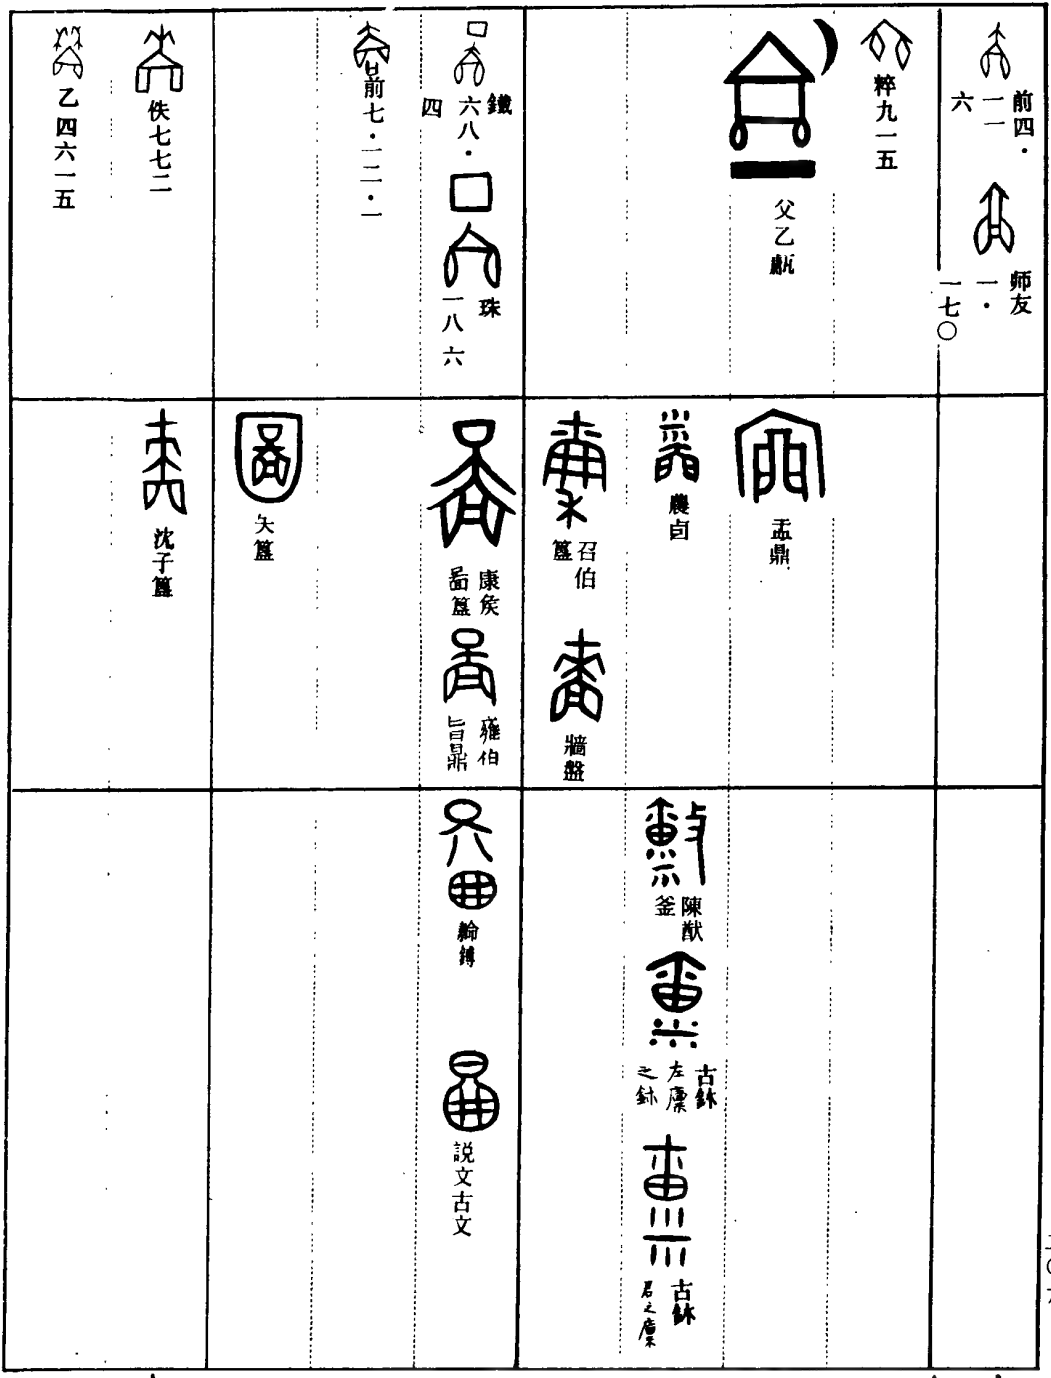 前四·
一一
六
师友
一·
一七〇
粹九一五
父乙甗
鐵
六八·
四
珠
一八六
前七·一二·一
佚七七二
乙四六一五
盂鼎
農卣
召伯
簋
牆盤
康侯
啚簋
雍伯
旨鼎
夨簋
沈子簋
陳猷
釜
古鉨
左廩
之鉨
古鉨
君之廩
𦅫鎛
説文古文